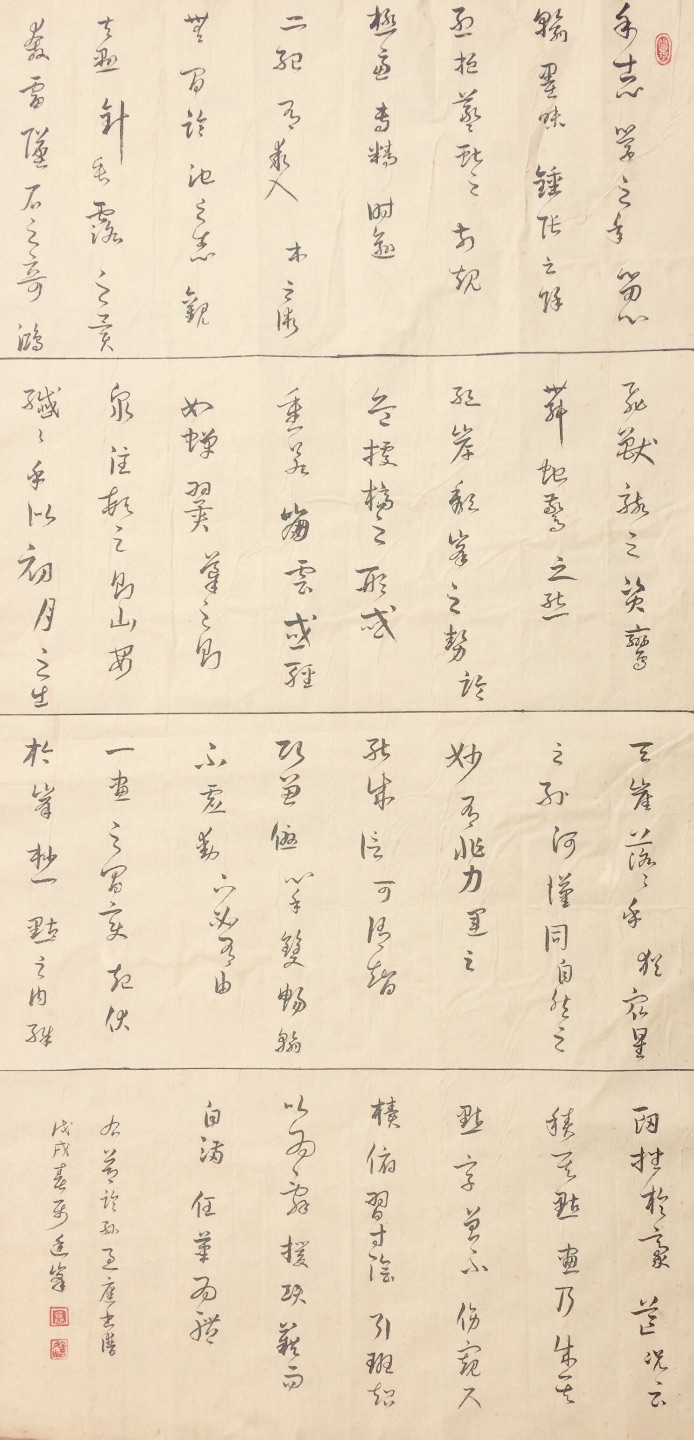 余志學之年留心
翰墨味鍾張之餘
烈挹羲獻之前規
極慮專精時逾
二紀有乖入木之術
無間臨池之志觀
夫懸針垂露之異
奔雷墜石之奇鴻
飛獸駭之資鸞
舞蛇驚之態
絕岸頹峯之勢臨
危據槁之形或
重若崩雲或輕
如蟬翼導之則
泉注頓之則山安
纖〻乎似初月之出
天崖落〻乎猶衆星
之列河漢同自然之
妙有非力運之
能成信可謂智
巧兼優心手雙暢翰
不虛動下必有由
一畫之間變起伏
於峯杪一點之內殊
衄挫於豪芒況云
積其點畫乃成其
點字曾不傍窺尺
櫝俯習寸陰引班超
以為辭援項籍而
自滿任筆為體
右節臨孫過庭書譜
戊戌春 廷峯